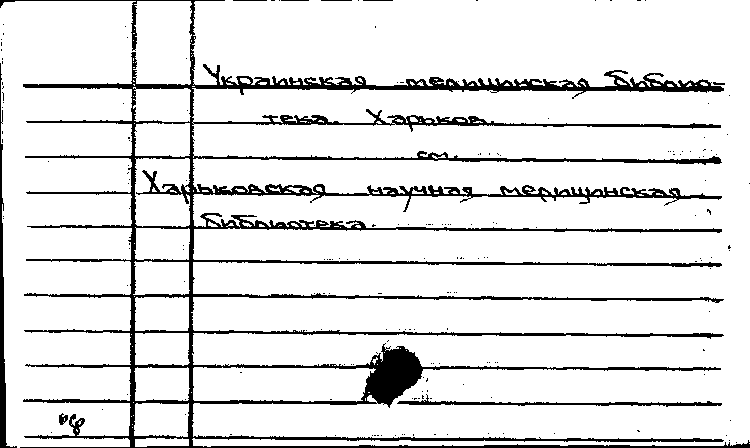 Украинская медицинская библио-
тека. Харьков.
см.
Харьковская научная медицинская
библиотека.